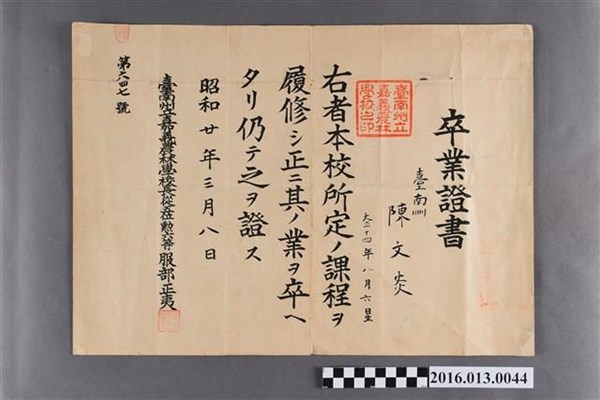 卒業證書
臺南州
陳文炎
大正十四年八月六日生
臺南州立
嘉義農林
學校之印
右者本校所定ノ課程ヲ
履修シ正ニ其ノ業ヲ卒ヘ
タリ仍テ之ヲ證ス
昭和廿年三月八日
臺南州立嘉義農林學校長從五位勲六等服部正夷
第六四七號
2016.013.0044